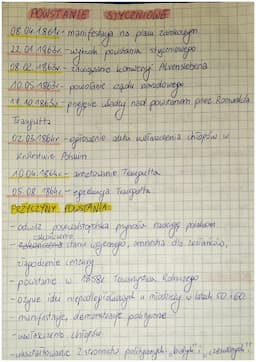 POWSTANIE STYCZNIOWE
08.04.1861r. - manifestacja na placu zamkowym
22.01.1863r. - wybuch powstania styczniowego
08.02.1863r. - zawiązanie konwencji Alvenslebena
10.05.1863r. - powstanie rządu narodowego
17.10.1863r. - przejęcie władzy nad powstaniem przez Romualda
Traugutta
02.03.1864r. - ogłoszenie aktu uwłaszczenia chłopów w
Królestwie Polskim
10.04.1864r. - aresztowanie Traugutta
05.08.1864r. - egzekucja Traugutta
PRZYCZYNY POWSTANIA:
- odwilż posewastopolska
stanu wojennego, amnestia dla zesłańców,
złagodzenie cenzury
- powstanie w 1858r. Towarzystwa Rolniczego
- ożywienie idei niepodległościowych u młodzieży w latach 50. i 60.
- manifestacje, demonstracje polityczne
- uwłaszczenie chłopów
- ukształtowanie 2 stronnictw politycznych: "białych" i "czerwonych"